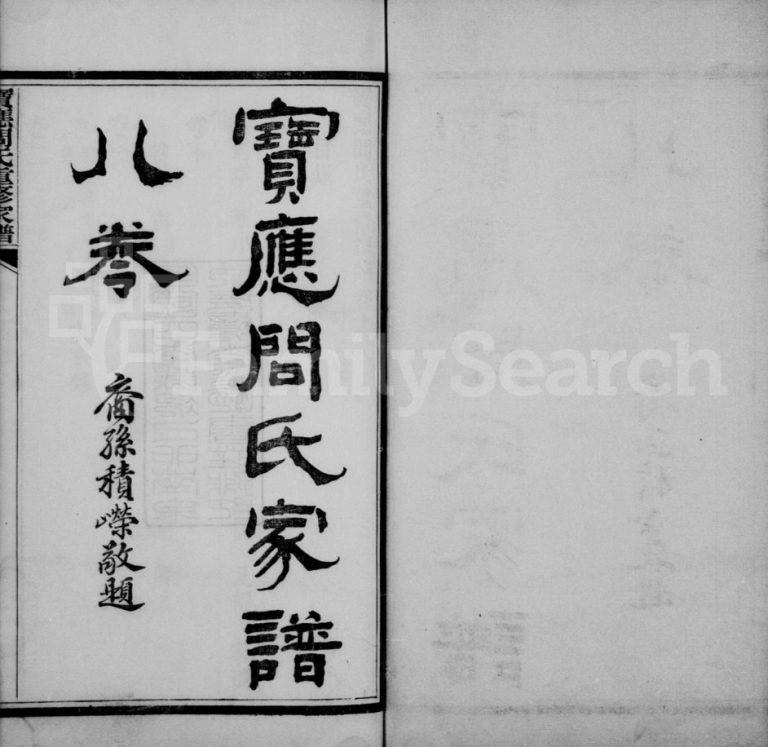 寶應問氏家譜
八卷
裔孫積嶸敬題
寶應問氏重修家譜
FamilySearch